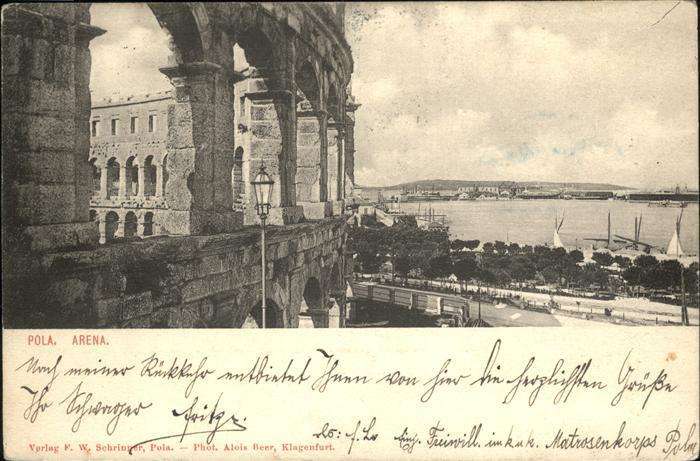 POLA. ARENA.
Nach meiner Rückkehr entbietet Ihnen von hier die herzlichsten Grüße
Ihr Schwager Fritze.
Freiwill. im k.u.k. Matrosenkorps Pola
Verlag F. W. Schrinner, Pola. — Phot. Alois Beer, Klagenfurt.